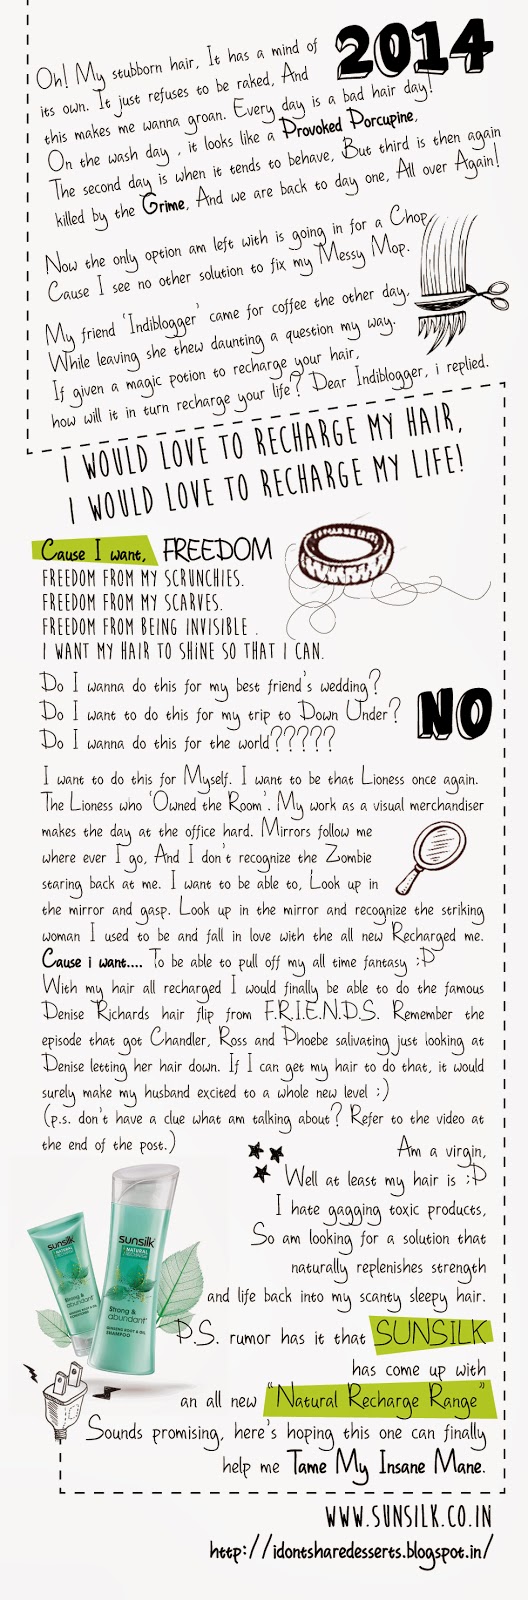 2014
Oh! My stubborn hair, It has a mind of
its own. It just refuses to be raked, And
this makes me wanna groan. Every day is a bad hair day!
On the wash day , it looks like a Provoked Porcupine,
The second day is when it tends to behave, But third is then again
killed by the Grime, And we are back to day one, All over Again!
Now the only option am left with is going in for a Chop,
Cause I see no other solution to fix my Messy Mop.
My friend 'Indiblogger' came for coffee the other day.
While leaving she thew daunting a question my way.
If given a magic potion to recharge your hair,
how will it in turn recharge your life? Dear Indiblogger, i replied.
I WOULD LOVE TO RECHARGE MY HAIR,
I WOULD LOVE TO RECHARGE MY LIFE!
Cause I want, FREEDOM
FREEDOM FROM MY SCRUNCHIES.
FREEDOM FROM MY SCARVES.
FREEDOM FROM BEING INVISIBLE .
I WANT MY HAIR TO SHINE SO THAT I CAN.
Do I wanna do this for my best friend's wedding?
Do I want to do this for my trip to Down Under?
Do I wanna do this for the world?????
NO
I want to do this for Myself. I want to be that Lioness once again.
The Lioness who 'Owned the Room'. My work as a visual merchandiser
makes the day at the office hard. Mirrors follow me
where ever I go, And I don't recognize the Zombie
staring back at me. I want to be able to, Look up in
the mirror and gasp. Look up in the mirror and recognize the striking
woman I used to be and fall in love with the all new Recharged me.
Cause i want.... To be able to pull off my all time fantasy :P
With my hair all recharged I would finally be able to do the famous
Denise Richards hair flip from F.R.I.E.N.D.S. Remember the
episode that got Chandler, Ross and Phoebe salivating just looking at
Denise letting her hair down. If I can get my hair to do that, it would
surely make my husband excited to a whole new level ;)
(p.s. don't have a clue what am talking about? Refer to the video at
the end of the post.)
Am a virgin,
Well at least my hair is :P
I hate gagging toxic products,
So am looking for a solution that
naturally replenishes strength
and life back into my scanty sleepy hair.
P.S. rumor has it that SUNSILK
has come up with
an all new "Natural Recharge Range"
Sounds promising, here's hoping this one can finally
help me Tame My Insane Mane.
sunsilk
NATURAL
Strong &
abundant
sunsilk
NATURAL
Strong &
abundant
GINSENG ROOT & OIL
SHAMPOO
WWW.SUNSILK.CO.IN
http://idontsharedesserts.blogspot.in/